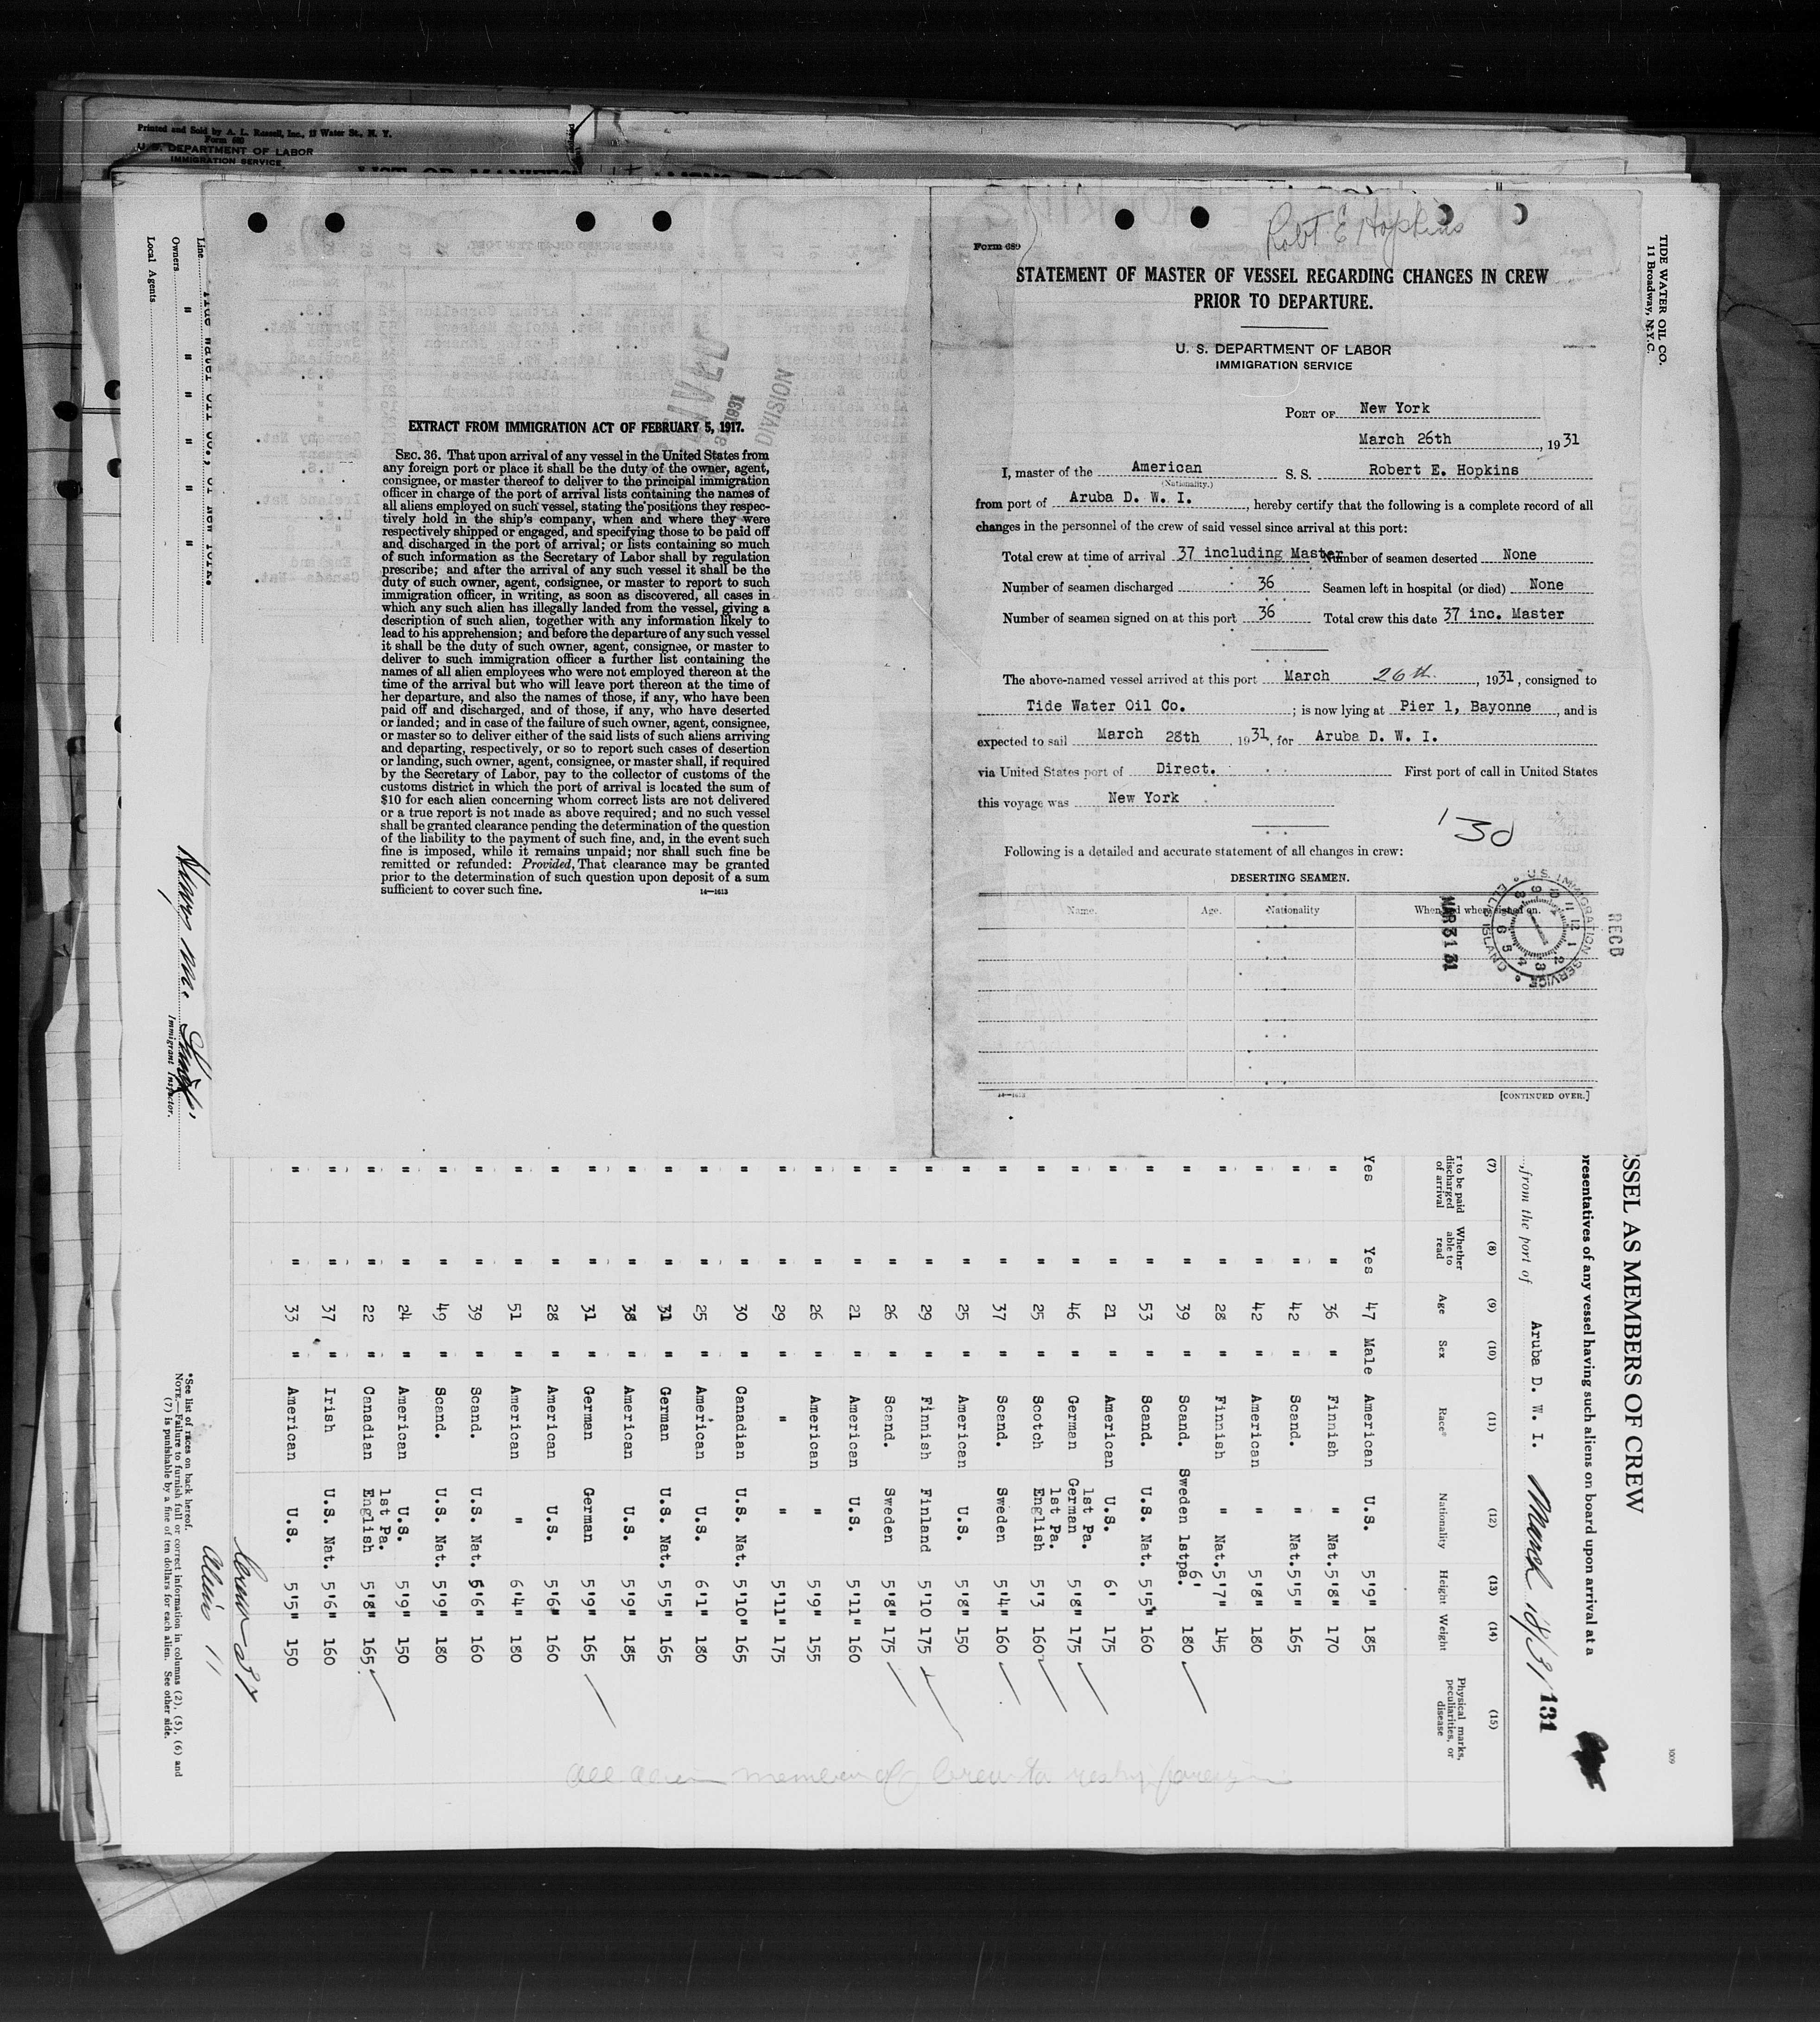 Printed and Sold by A. L. Russell, Inc., 13 Water St., N. Y.
Form 680
U. S. DEPARTMENT OF LABOR
IMMIGRATION SERVICE
Line
Owners
Local Agents
Tide Water Oil Co., of New York.
Immigrant Inspector.
EXTRACT FROM IMMIGRATION ACT OF FEBRUARY 5, 1917.
SEC. 36. That upon arrival of any vessel in the United States from
any foreign port or place it shall be the duty of the owner, agent,
consignee, or master thereof to deliver to the principal immigration
officer in charge of the port of arrival lists containing the names of
all aliens employed on such vessel, stating the positions they respec-
tively hold in the ship's company, when and where they were
respectively shipped or engaged, and specifying those to be paid off
and discharged in the port of arrival; or lists containing so much
of such information as the Secretary of Labor shall by regulation
prescribe; and after the arrival of any such vessel it shall be the
duty of such owner, agent, consignee, or master to report to such
immigration officer, in writing, as soon as discovered, all cases in
which any such alien has illegally landed from the vessel, giving a
description of such alien, together with any information likely to
lead to his apprehension; and before the departure of any such vessel
it shall be the duty of such owner, agent, consignee, or master to
deliver to such immigration officer a further list containing the
names of all alien employees who were not employed thereon at the
time of the arrival but who will leave port thereon at the time of
her departure, and also the names of those, if any, who have been
paid off and discharged, and of those, if any, who have deserted
or landed; and in case of the failure of such owner, agent, consignee,
or master so to deliver either of the said lists of such aliens arriving
and departing, respectively, or so to report such cases of desertion
or landing, such owner, agent, consignee, or master shall, if required
by the Secretary of Labor, pay to the collector of customs of the
customs district in which the port of arrival is located the sum of
$10 for each alien concerning whom correct lists are not delivered
or a true report is not made as above required; and no such vessel
shall be granted clearance pending the determination of the question
of the liability to the payment of such fine, and, in the event such
fine is imposed, while it remains unpaid; nor shall such fine be
remitted or refunded: Provided, That clearance may be granted
prior to the determination of such question upon deposit of a sum
sufficient to cover such fine.
14—1613
1931
DIVISION
Robt E Hopkins
Form 689
STATEMENT OF MASTER OF VESSEL REGARDING CHANGES IN CREW
PRIOR TO DEPARTURE.
U. S. DEPARTMENT OF LABOR
IMMIGRATION SERVICE
PORT OF New York
March 26th, 1931
I, master of the American S. S. Robert E. Hopkins
(Nationality.)
from port of Aruba D. W. I., hereby certify that the following is a complete record of all
changes in the personnel of the crew of said vessel since arrival at this port:
Total crew at time of arrival 37 including Master Number of seamen deserted None
Number of seamen discharged 36 Seamen left in hospital (or died) None
Number of seamen signed on at this port 36 Total crew this date 37 inc. Master
The above-named vessel arrived at this port March 26th, 1931, consigned to
Tide Water Oil Co. ; is now lying at Pier 1, Bayonne, and is
expected to sail March 28th, 1931, for Aruba D. W. I.
via United States port of Direct. First port of call in United States
this voyage was New York
130
Following is a detailed and accurate statement of all changes in crew:
DESERTING SEAMEN.
Name. Age. Nationality When and where signed on.
MAR 31 31
U.S. IMMIGRATION SERVICE
ELLIS ISLAND
RECD
14—1613
[CONTINUED OVER.]
TIDE WATER OIL CO.
11 Broadway, N.Y.C.
SSEL AS MEMBERS OF CREW
presentatives of any vessel having such aliens on board upon arrival at a
, from the port of Aruba D. W. I. March 18/31
131
3009
(7) (8) (9) (10) (11) (12) (13) (14) (15)
r to be paid discharged of arrival Whether able to read Age Sex Race* Nationality Height Weight Physical marks, peculiarities, or disease
Yes Yes 47 Male American U.S. 5'9" 185
" " 36 " Finnish " Nat. 5'8" 170
" " 42 " Scand. " Nat. 5'5" 165
" " 42 " American " 5'8" 180
" " 28 " Finnish " Nat. 5'7" 145
" " 39 " Scand. Sweden 1stpa. 6' 180
" " 53 " Scand. U.S. Nat. 5'5" 160
" " 21 " American U.S. 6' 175
" " 46 " German 1st Pa. German 5'8" 175
" " 25 " Scotch 1st Pa. English 5'3 160
" " 37 " Scand. Sweden 5'4" 160
" " 25 " American U.S. 5'8" 150
" " 29 " Finnish Finland 5'10 175
" " 26 " Scand. Sweden 5'8" 175
" " 21 " American U.S. 5'11" 160
" " 26 " American " 5'9" 155
" " 29 " " " 5'11" 175
" " 30 " Canadian U.S. Nat. 5'10" 165
" " 25 " American U.S. 6'1" 180
" " 31 " German U.S. Nat. 5'5" 165
" " 38 " American U.S. 5'9" 185
" " 31 " German German 5'9" 165
" " 28 " American U.S. 5'6" 160
" " 51 " American " 6'4" 180
" " 39 " Scand. U.S. Nat. 5'6" 160
" " 49 " Scand. U.S. Nat. 5'9" 180
" " 24 " American U.S. 5'9" 150
" " 22 " Canadian 1st Pa. English 5'8" 165
" " 37 " Irish U.S. Nat. 5'6" 160
" " 33 " American U.S. 5'5" 150
All alien members of Crew to reship foreign
Crew 37
Alien 11
*See list of races on back hereof.
NOTE.—Failure to furnish full or correct information in columns (2), (5), (6) and
(7) is punishable by a fine of ten dollars for each alien. See other side.